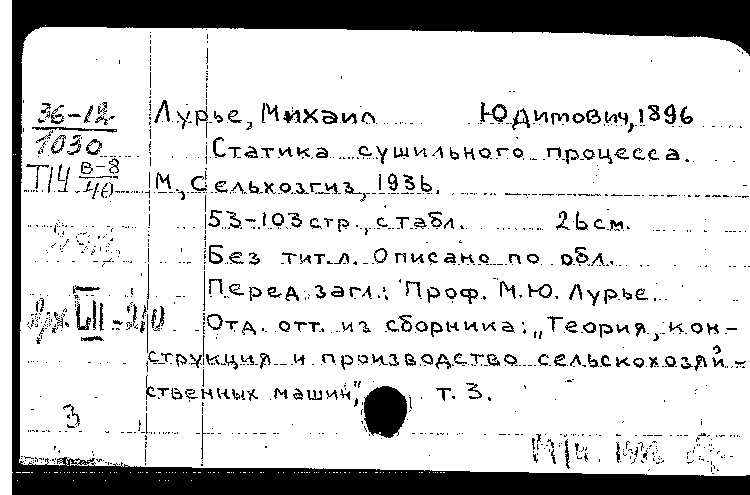 36-12
1030
Т14 В-8
40
Лурье, Михаил Юдимович, 1896
Статика сушильного процесса.
М., Сельхозгиз, 1936.
53-103 стр., с табл. 26 см.
Без тит. л. Описано по обл.
Перед загл.: Проф. М.Ю. Лурье.
Отд. отт. из сборника: „Теория, кон-
струкция и производство сельскохозяй-
ственных машин", т. 3.
3